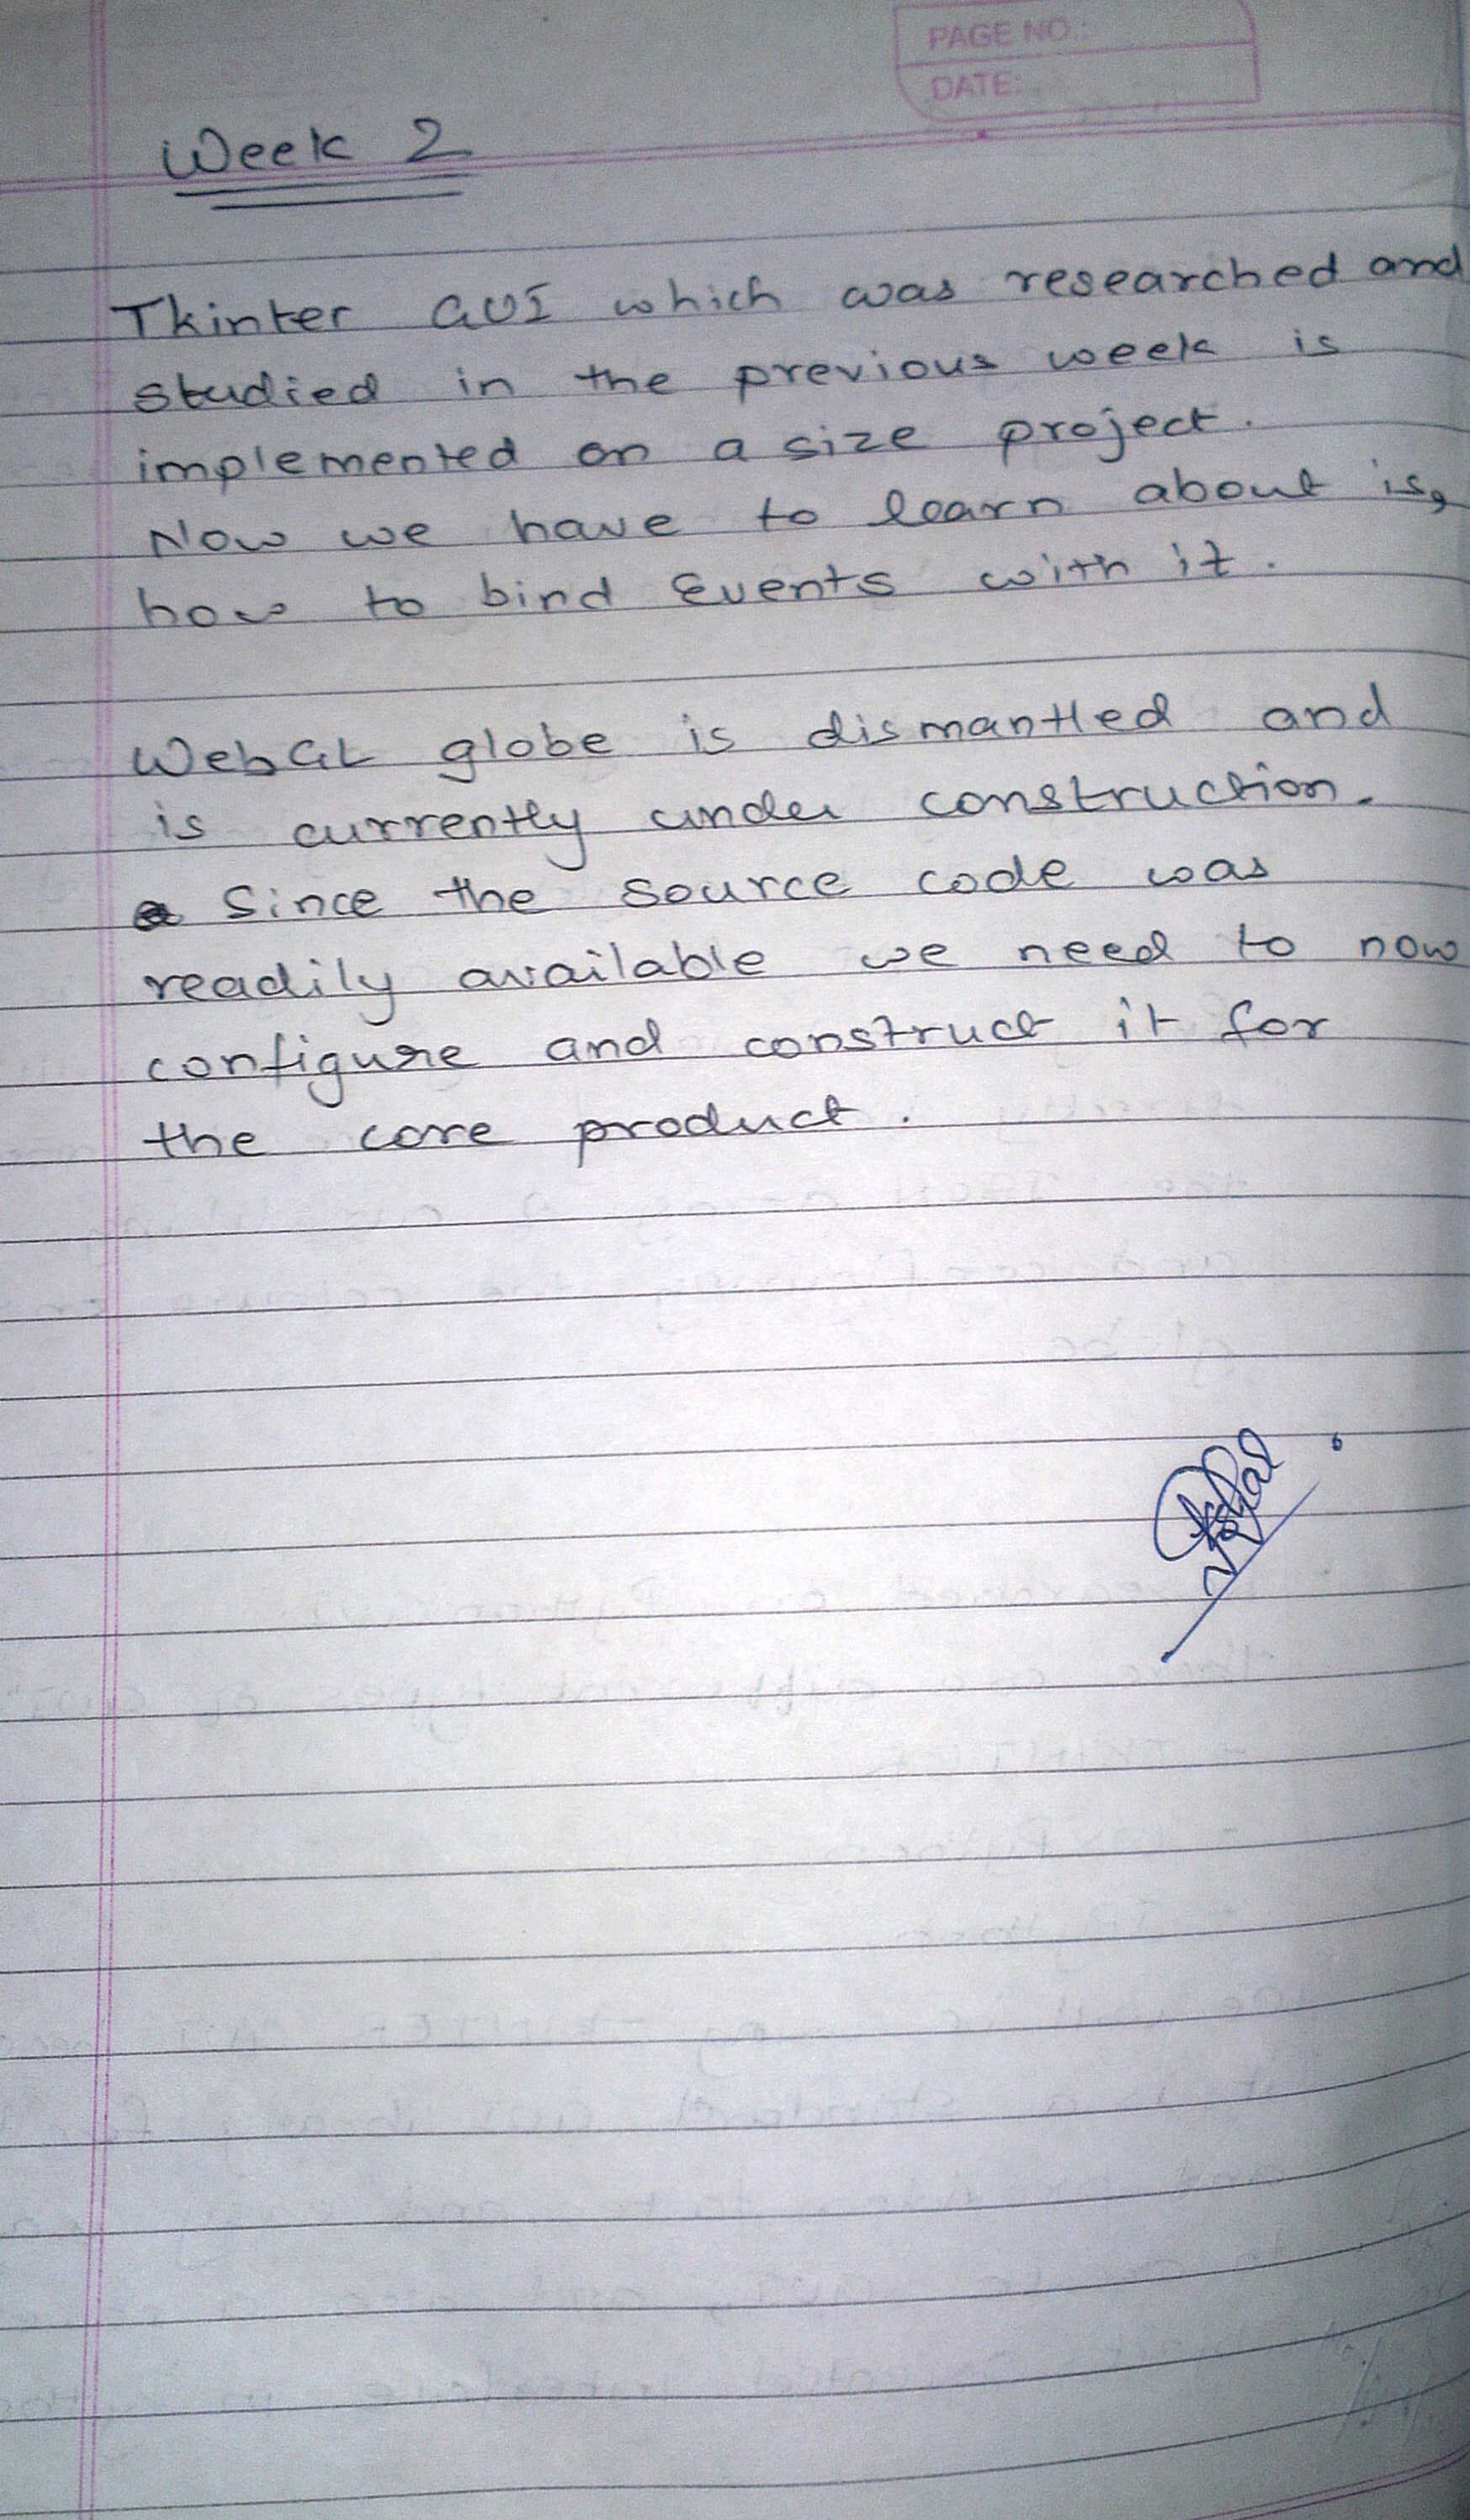 PAGE NO.:
DATE:
Week 2
Tkinter GUI which was researched and
studied in the previous week is
implemented on a size project.
Now we have to learn about is,
how to bind Events with it.
WebGL globe is dismantled and
is currently under construction.
Since the source code was
readily available we need to now
configure and construct it for
the core product.